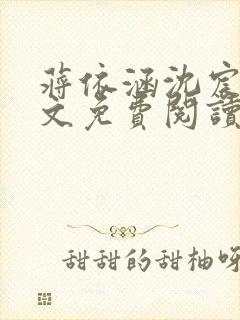 蔣依涵沈宸
文免費閱讀
甜甜的甜柚呀